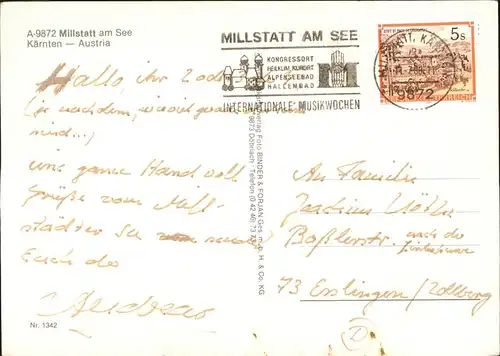 A-9872 Millstatt am See
Kärnten — Austria
MILLSTATT AM SEE
KONGRESSORT
HEILKLIM. KURORT
ALPENSEEBAD
HALLENBAD
INTERNATIONALE MUSIKWOCHEN
5s
9872
Hallo, ihr 2 oder
(je nachdem, wieviel
sind...)
eine ganze Hand voll
Grüße vom Mill-
städter See
Euch die
Andreas
Nr. 1342
verlag Foto BINDER & FORJAN Ges. m. b. H. & Co. KG
9873 Döbriach · Telefon (0 42 46) 73
An Familie
Joachim
Boßlerstr.
73 Esslingen/Zollberg
(D)